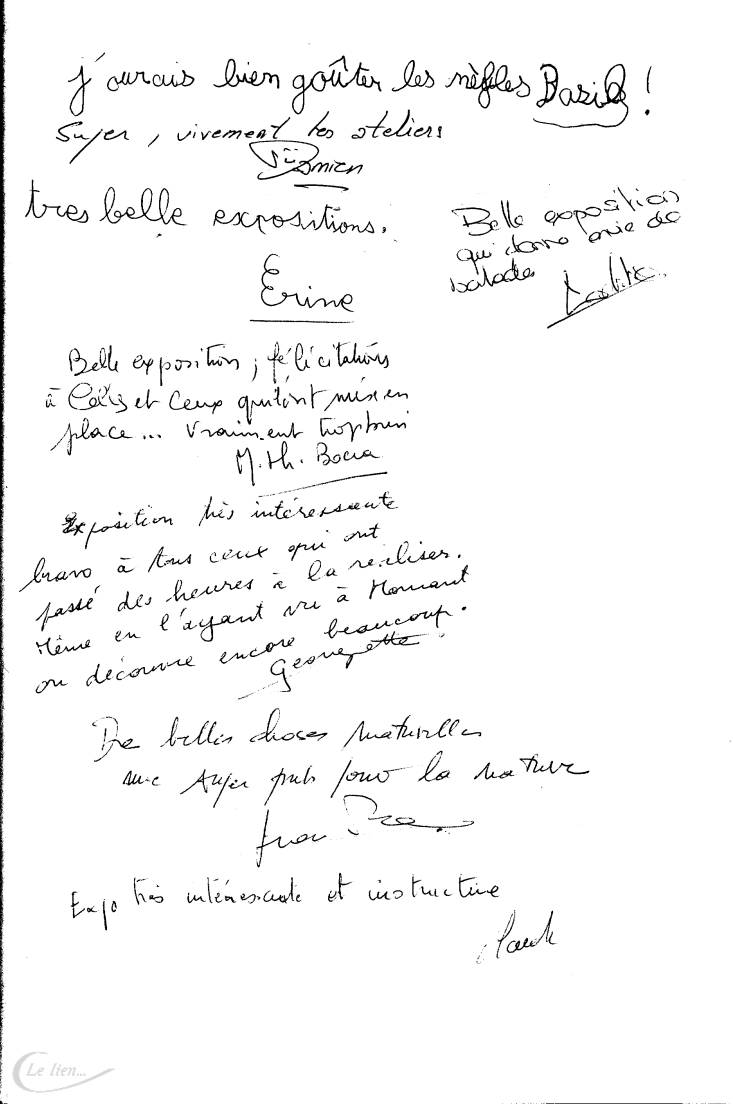 j'aurais bien goûter les nèfles Basile !
Super, vivement les ateliers
Damien
tres belle expositions.
Erine
Belle exposition
qui donne envie de
balade
Belle exposition, félicitations
à Celles et Ceux qui l'ont mis en
place... Vraiment trop bien
M. th. Bocra
Exposition très intéressante
bravo à tous ceux qui ont
passé des heures à la réaliser.
Même en l'ayant vu à Mornant
on découvre encore beaucoup.
Georgette
De belles choses naturelles
pour la nature
Expo très intéressante et instructive
Le lien...